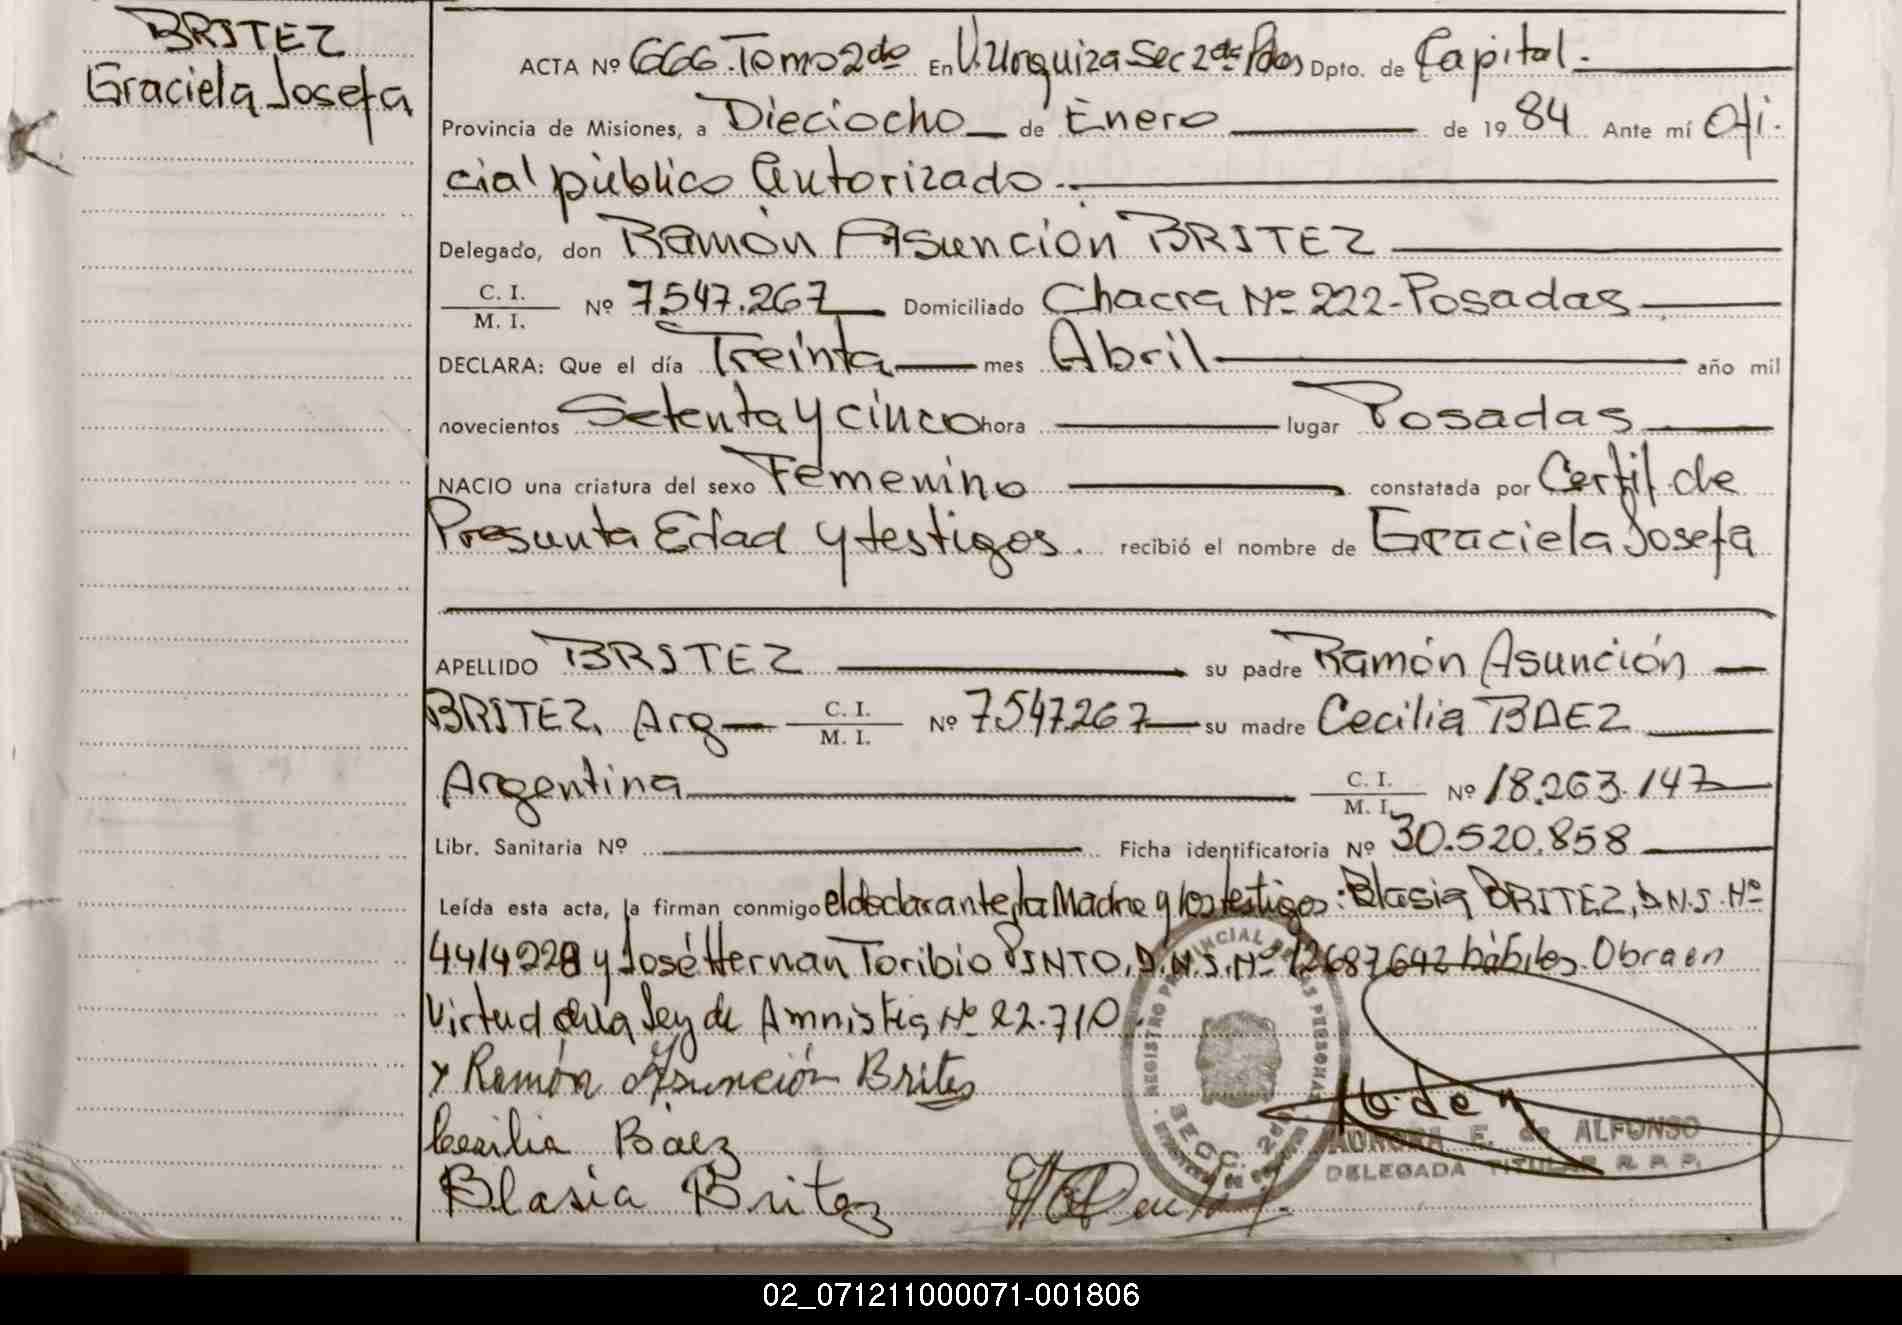 BRITEZ
Graciela Josefa
ACTA Nº 666. Tomo 2do En V. Urquiza Sec 2da Pdas Dpto. de Capital.-
Provincia de Misiones, a Dieciocho de Enero de 1984 Ante mí Ofi-
cial público Autorizado.-
Delegado, don Ramón Asunción BRITEZ
C. I.
M. I. Nº 7.547.267 Domiciliado Chacra Nº 222-Posadas
DECLARA: Que el día Treinta mes Abril año mil
novecientos Setenta y cinco hora lugar Posadas
NACIO una criatura del sexo Femenino constatada por Certif. de
Presunta Edad y testigos. recibió el nombre de Graciela Josefa
APELLIDO BRITEZ su padre Ramón Asunción
BRITEZ, Arg C. I.
M. I. Nº 7.547.267 su madre Cecilia BAEZ
Argentina C. I.
M. I. Nº 18.263.147
Libr. Sanitaria Nº Ficha identificatoria Nº 30.520.858
Leída esta acta, la firman conmigo el declarante, la Madre y los testigos: Blasia BRITEZ, D.N.I. Nº
4414228 y José Hernan Toribio PINTO, D.N.I. Nº 12687642 hábiles. Obra en
Virtud de la Ley de Amnistia Nº 22.710.
x Ramón Asunción Brites
Cecilia Báez
Blasia Britez
REGISTRO PROVINCIAL DE LAS PERSONAS
SECC. 2da
AURORA E. de ALFONSO
DELEGADA TITULAR R. P. P.
02_071211000071-001806